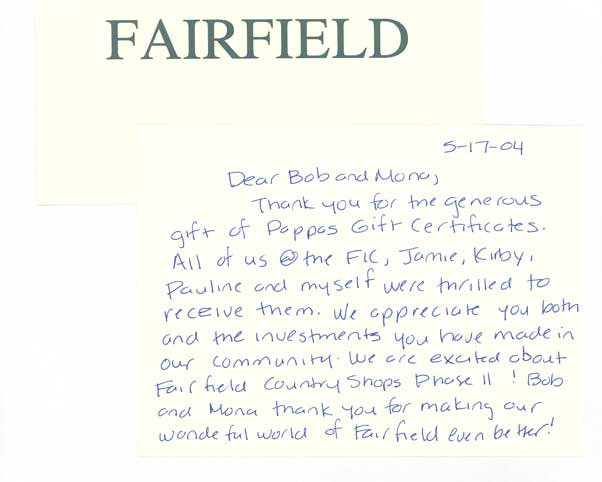 FAIRFIELD
5-17-04
Dear Bob and Mona,
Thank you for the generous
gift of Pappas Gift Certificates.
All of us @ the FIC, Jamie, Kirby,
Pauline and myself were thrilled to
receive them. We appreciate you both
and the investments you have made in
our community. We are excited about
Fairfield Country Shops Phase II ! Bob
and Mona thank you for making our
wondeful world of Fairfield even better!